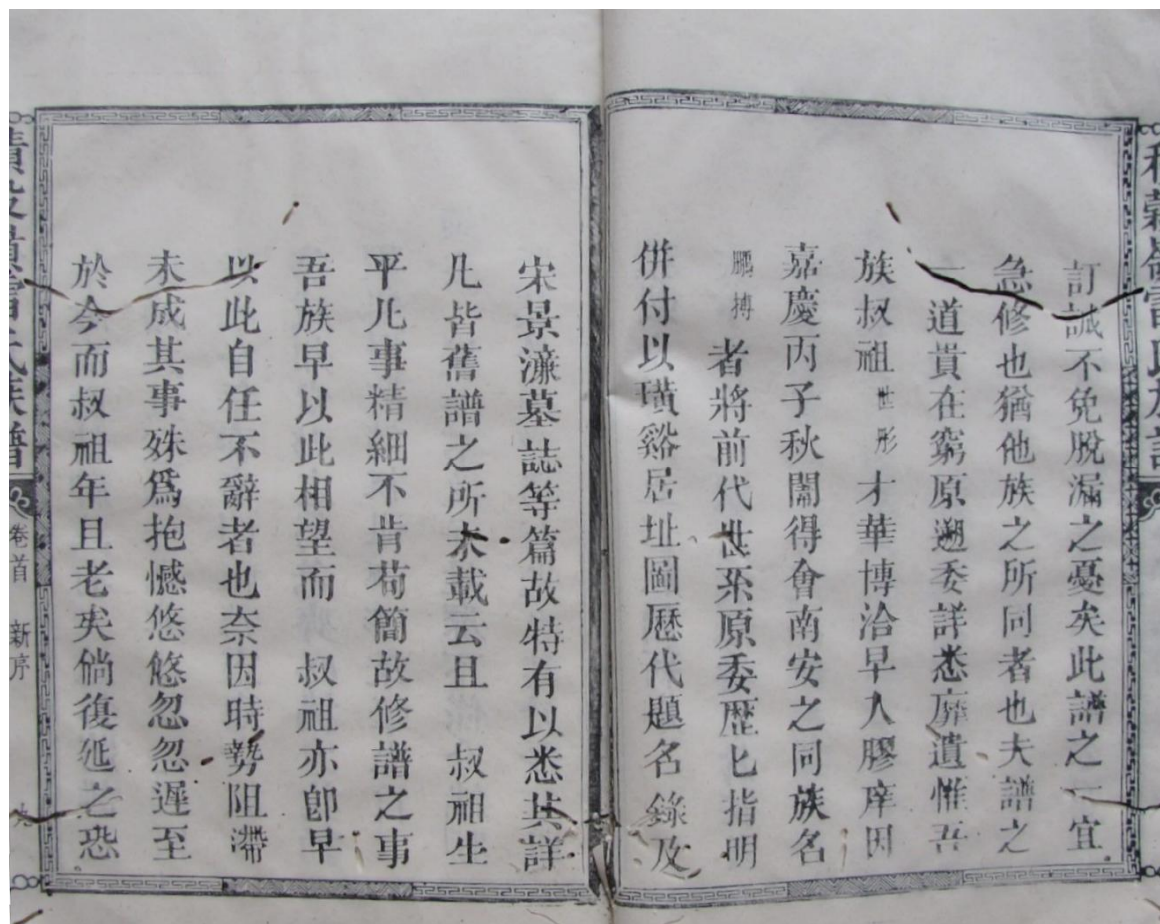 訂譌不免脫漏之憂矣此譜之一宜
急修也猶他族之所同者也夫譜之
一道貴在窮原遡委詳悉靡遺惟吾
族叔祖世彤才華博洽早入膠庠因
嘉慶丙子秋闈得會南安之同族名
鵬搏者將前代世系原委歷匕指明
併付以璜谿居址圖歷代題名錄及
宋景濂墓誌等篇故特有以悉其詳
凡皆舊譜之所未載云且 叔祖生
平凡事精細不肯苟簡故修譜之事
吾族早以此相望而 叔祖亦卽早
以此自任不辭者也奈因時勢阻滯
未成其事殊爲抱憾悠悠忽忽遲至
於今而叔祖年且老矣倘復延之恐
氏族譜
卷首 新序